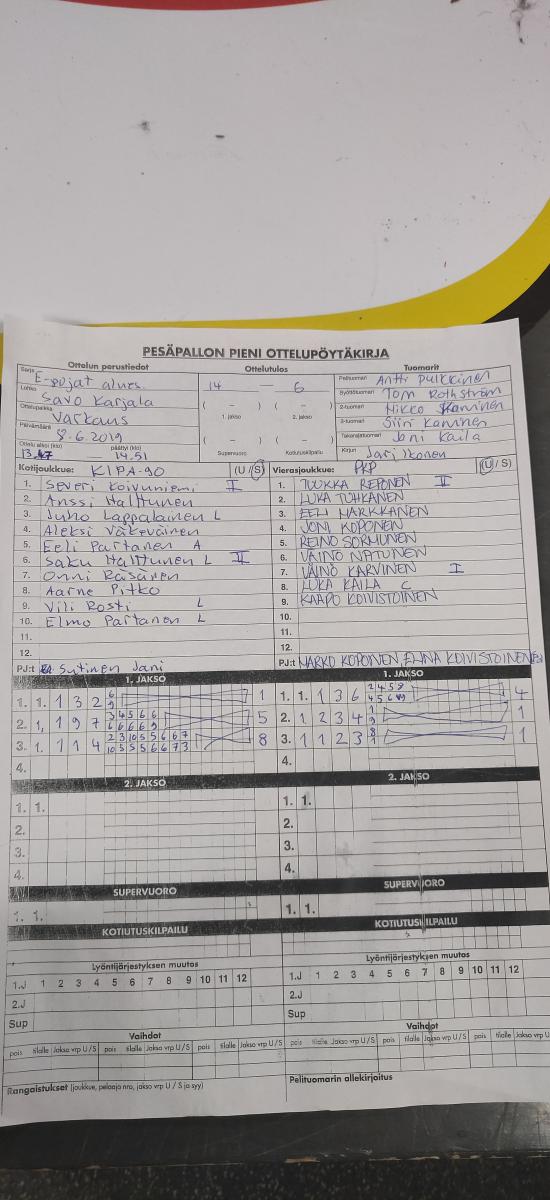 PESÄPALLON PIENI OTTELUPÖYTÄKIRJA
Ottelun perustiedot Ottelutulos Tuomarit
Sarja E-pojat alues.
Lohko Savo Karjala
Ottelupaikka Varkaus
Päivämäärä 8.6.2019
Ottelu alkoi (klo) päättyi (klo)
13.47 — 14.51
14 — 6
( – ) ( – )
1. jakso 2. jakso
( – ) ( – )
Supervuoro Kotiutuskilpailu
Pelituomari Antti Pulkkinen
Syöttötuomari Tom Rothström
2-tuomari Mikko Kaminen
3-tuomari Siiri Kaminen
Takarajatuomari Joni Kaila
Kirjuri Jari Ikonen
Kotijoukkue: KIPA-90 (U/S)
1. Severi Koivuniemi I
2. Anssi Halttunen
3. Juho Lappalainen L
4. Aleksi Väkeväinen
5. Eeli Partanen A
6. Saku Halttunen L II
7. Onni Räsänen
8. Aarne Pitko
9. Vili Rosti L
10. Elmo Partanen L
11.
12.
PJ:t Sutinen Jani
Vierasjoukkue: PKP (U/S)
1. TUUKKA REPONEN II
2. LUKA TUHKANEN
3. EELI MARKKANEN
4. JONI KOPONEN
5. REINO SORMUNEN
6. VÄINÖ NÄTUNEN
7. VÄINÖ KARVINEN I
8. LUKA KAILA C
9. KAAPO KOIVISTOINEN
10.
11.
12.
PJ:t MARKO KOPONEN, ELINA KOIVISTOINEN
1. JAKSO
1. 1. 1 3 2 6 9 1
2. 1. 1 9 7 3 4 5 6 6 6 6 6 6 9 5
3. 1. 1 1 4 2 3 10 5 5 6 6 7 10 5 5 5 6 6 7 3 8
4.
1. JAKSO
1. 1. 1 3 6 2 4 5 8 4 5 6 4
2. 1 2 3 4 1 9 1
3. 1 1 2 3 8 1 1
4.
2. JAKSO
1. 1.
2.
3.
4.
2. JAKSO
1. 1.
2.
3.
4.
SUPERVUORO
1. 1.
SUPERVUORO
1. 1.
KOTIUTUSKILPAILU
KOTIUTUSKILPAILU
Lyöntijärjestyksen muutos
1.J 1 2 3 4 5 6 7 8 9 10 11 12
2.J
Sup
Lyöntijärjestyksen muutos
1.J 1 2 3 4 5 6 7 8 9 10 11 12
2.J
Sup
Vaihdot
pois tilalle Jakso vrp U/S pois tilalle Jakso vrp U/S pois tilalle Jakso vrp U/S
Vaihdot
pois tilalle Jakso vrp U/S pois tilalle Jakso vrp U/S pois tilalle Jakso vrp U/S
Rangaistukset (joukkue, pelaaja nro, jakso vrp U / S ja syy)
Pelituomarin allekirjoitus